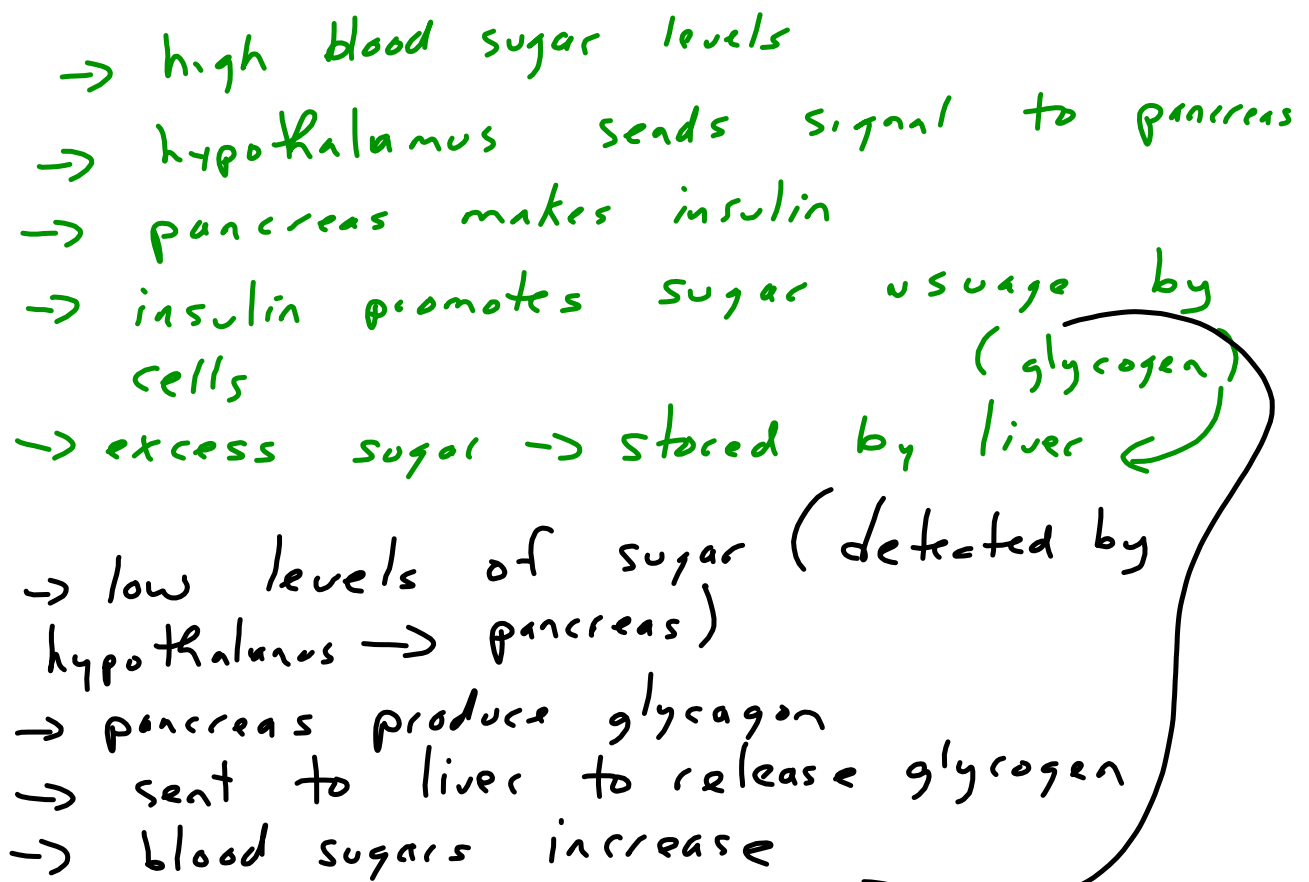 → high blood sugar levels
→ hypothalamus sends signal to pancreas
→ pancreas makes insulin
→ insulin promotes sugar usuage by
cells (glycogen)
→ excess sugar → stored by liver
→ low levels of sugar (detected by
hypothalamus → pancreas)
→ pancreas produce glycagon
→ sent to liver to release glycogen
→ blood sugars increase